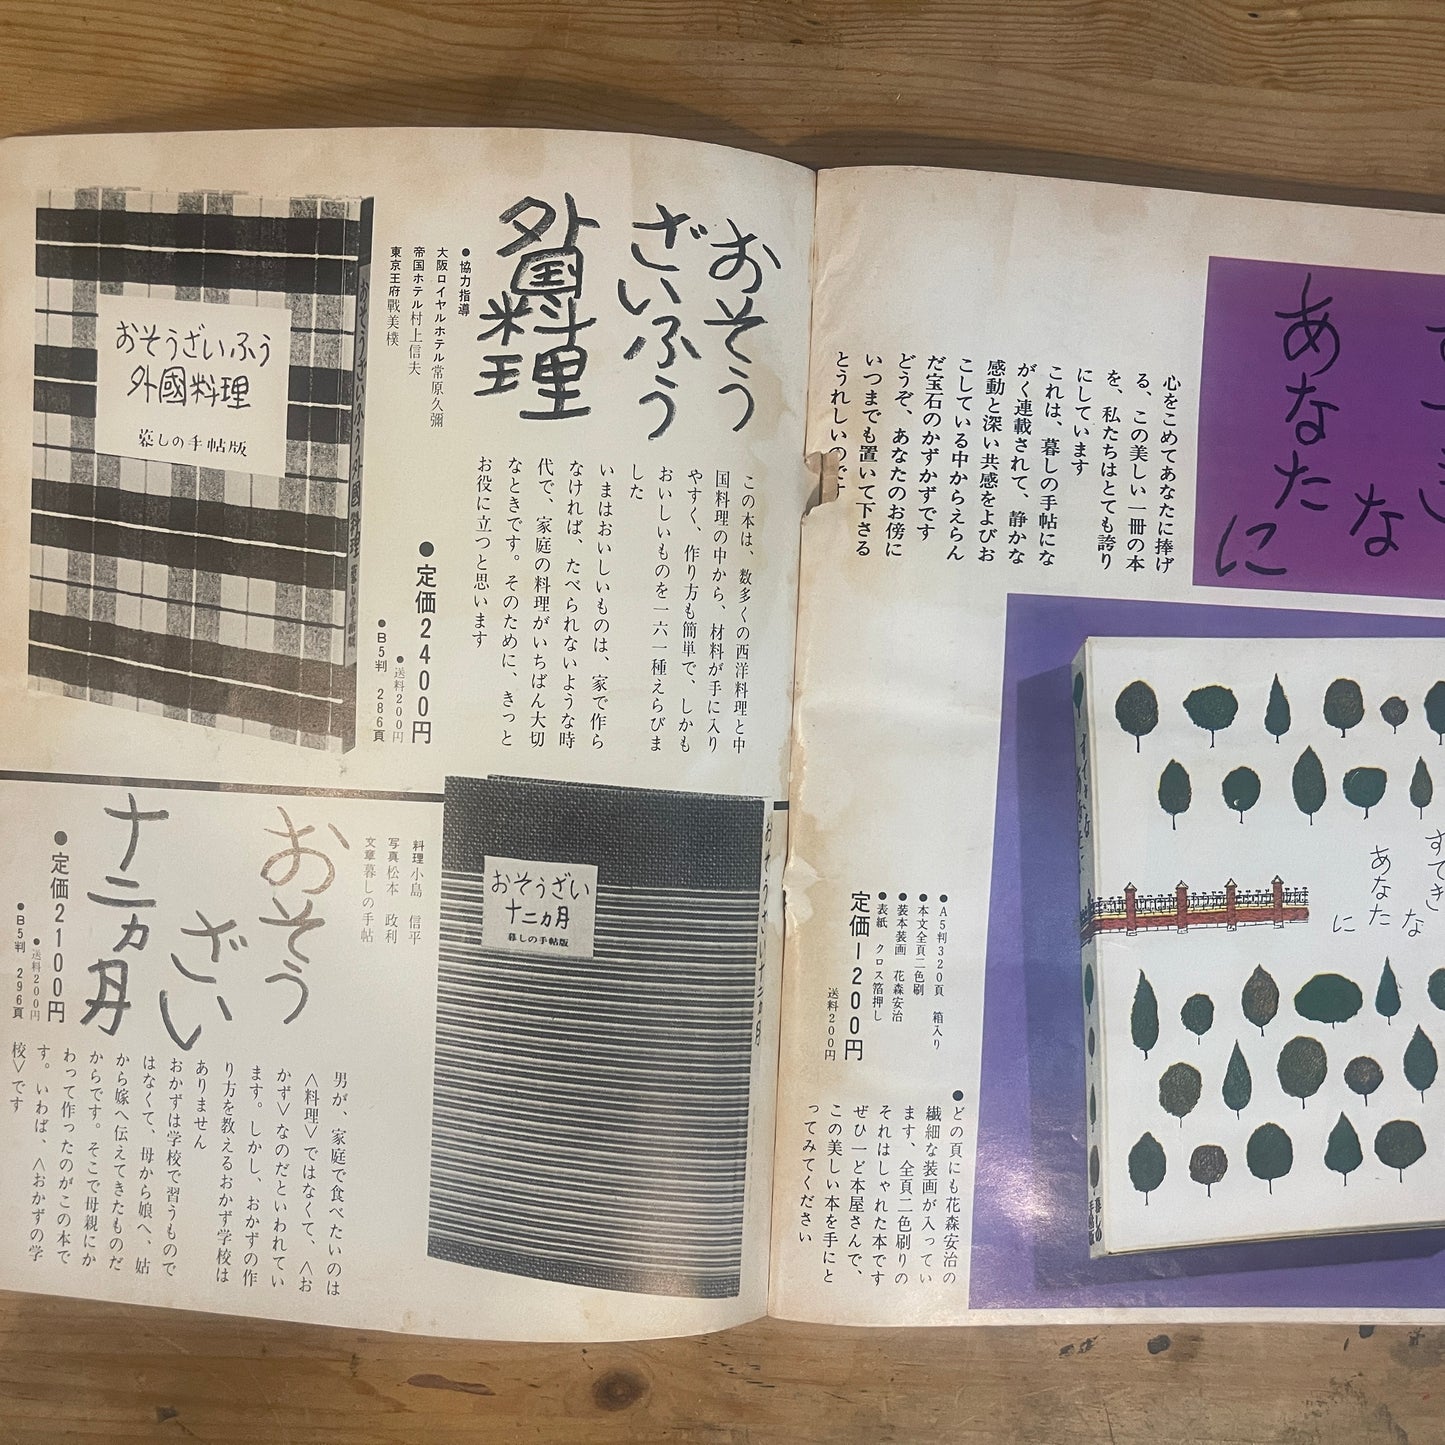 すてきな
あなたに
心をこめてあなたに捧げ
る、この美しい一冊の本
を、私たちはとても誇り
にしています
これは、暮しの手帖になな
がく連載されて、静かな
感動と深い共感をよびお
こしている中からえらん
だ宝石のかずかずです
どうぞ、あなたのお傍に
いつまでも置いて下さる
とうれしいのです
すてきな
あなた
に
すてきなあなたに
暮しの手帖版
●A5判320頁 箱入り
●本文全頁二色刷
●装本装画 花森安治
●表紙 クロス箔押し
定価1200円
送料200円
●どの頁にも花森安治の
繊細な装画が入ってい
ます、全頁二色刷りの
それはしゃれた本です
ぜひ一ど本屋さんで、
この美しい本を手にと
ってみてください
おそう
ざいふう
外国料理
●協力指導
大阪ロイヤルホテル常原久彌
帝国ホテル村上信夫
東京王府戰美樸
この本は、数多くの西洋料理と中
国料理の中から、材料が手に入り
やすく、作り方も簡単で、しかも
おいしいものを一六一種えらびま
した
いまはおいしいものは、家で作ら
なければ、たべられないような時
代で、家庭の料理がいちばん大切
なときです。そのために、きっと
お役に立つと思います
●定価2400円
●送料200円
●B5判 286頁
おそうざいふう
外國料理
暮しの手帖版
おそうざいふう外國料理 暮しの手帖版
おそうざい
十二ヵ月
暮しの手帖版
おそうざい十二ヵ月
料理小島 信平
写真松本 政利
文章暮しの手帖
おそう
ざい
十二ヵ月
●定価2100円
●送料200円
●B5判 296頁
男が、家庭で食べたいのは
〈料理〉ではなくて、〈お
かず〉なのだといわれてい
ます。しかし、おかずの作
り方を教えるおかず学校は
ありません
おかずは学校で習うもので
はなくて、母から娘へ、姑
から嫁へ伝えてきたものだ
からです。そこで母親にか
わって作ったのがこの本で
す。いわば、〈おかずの学
校〉です